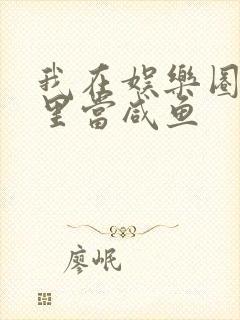 我在娱樂圈
里當咸鱼
廖岷